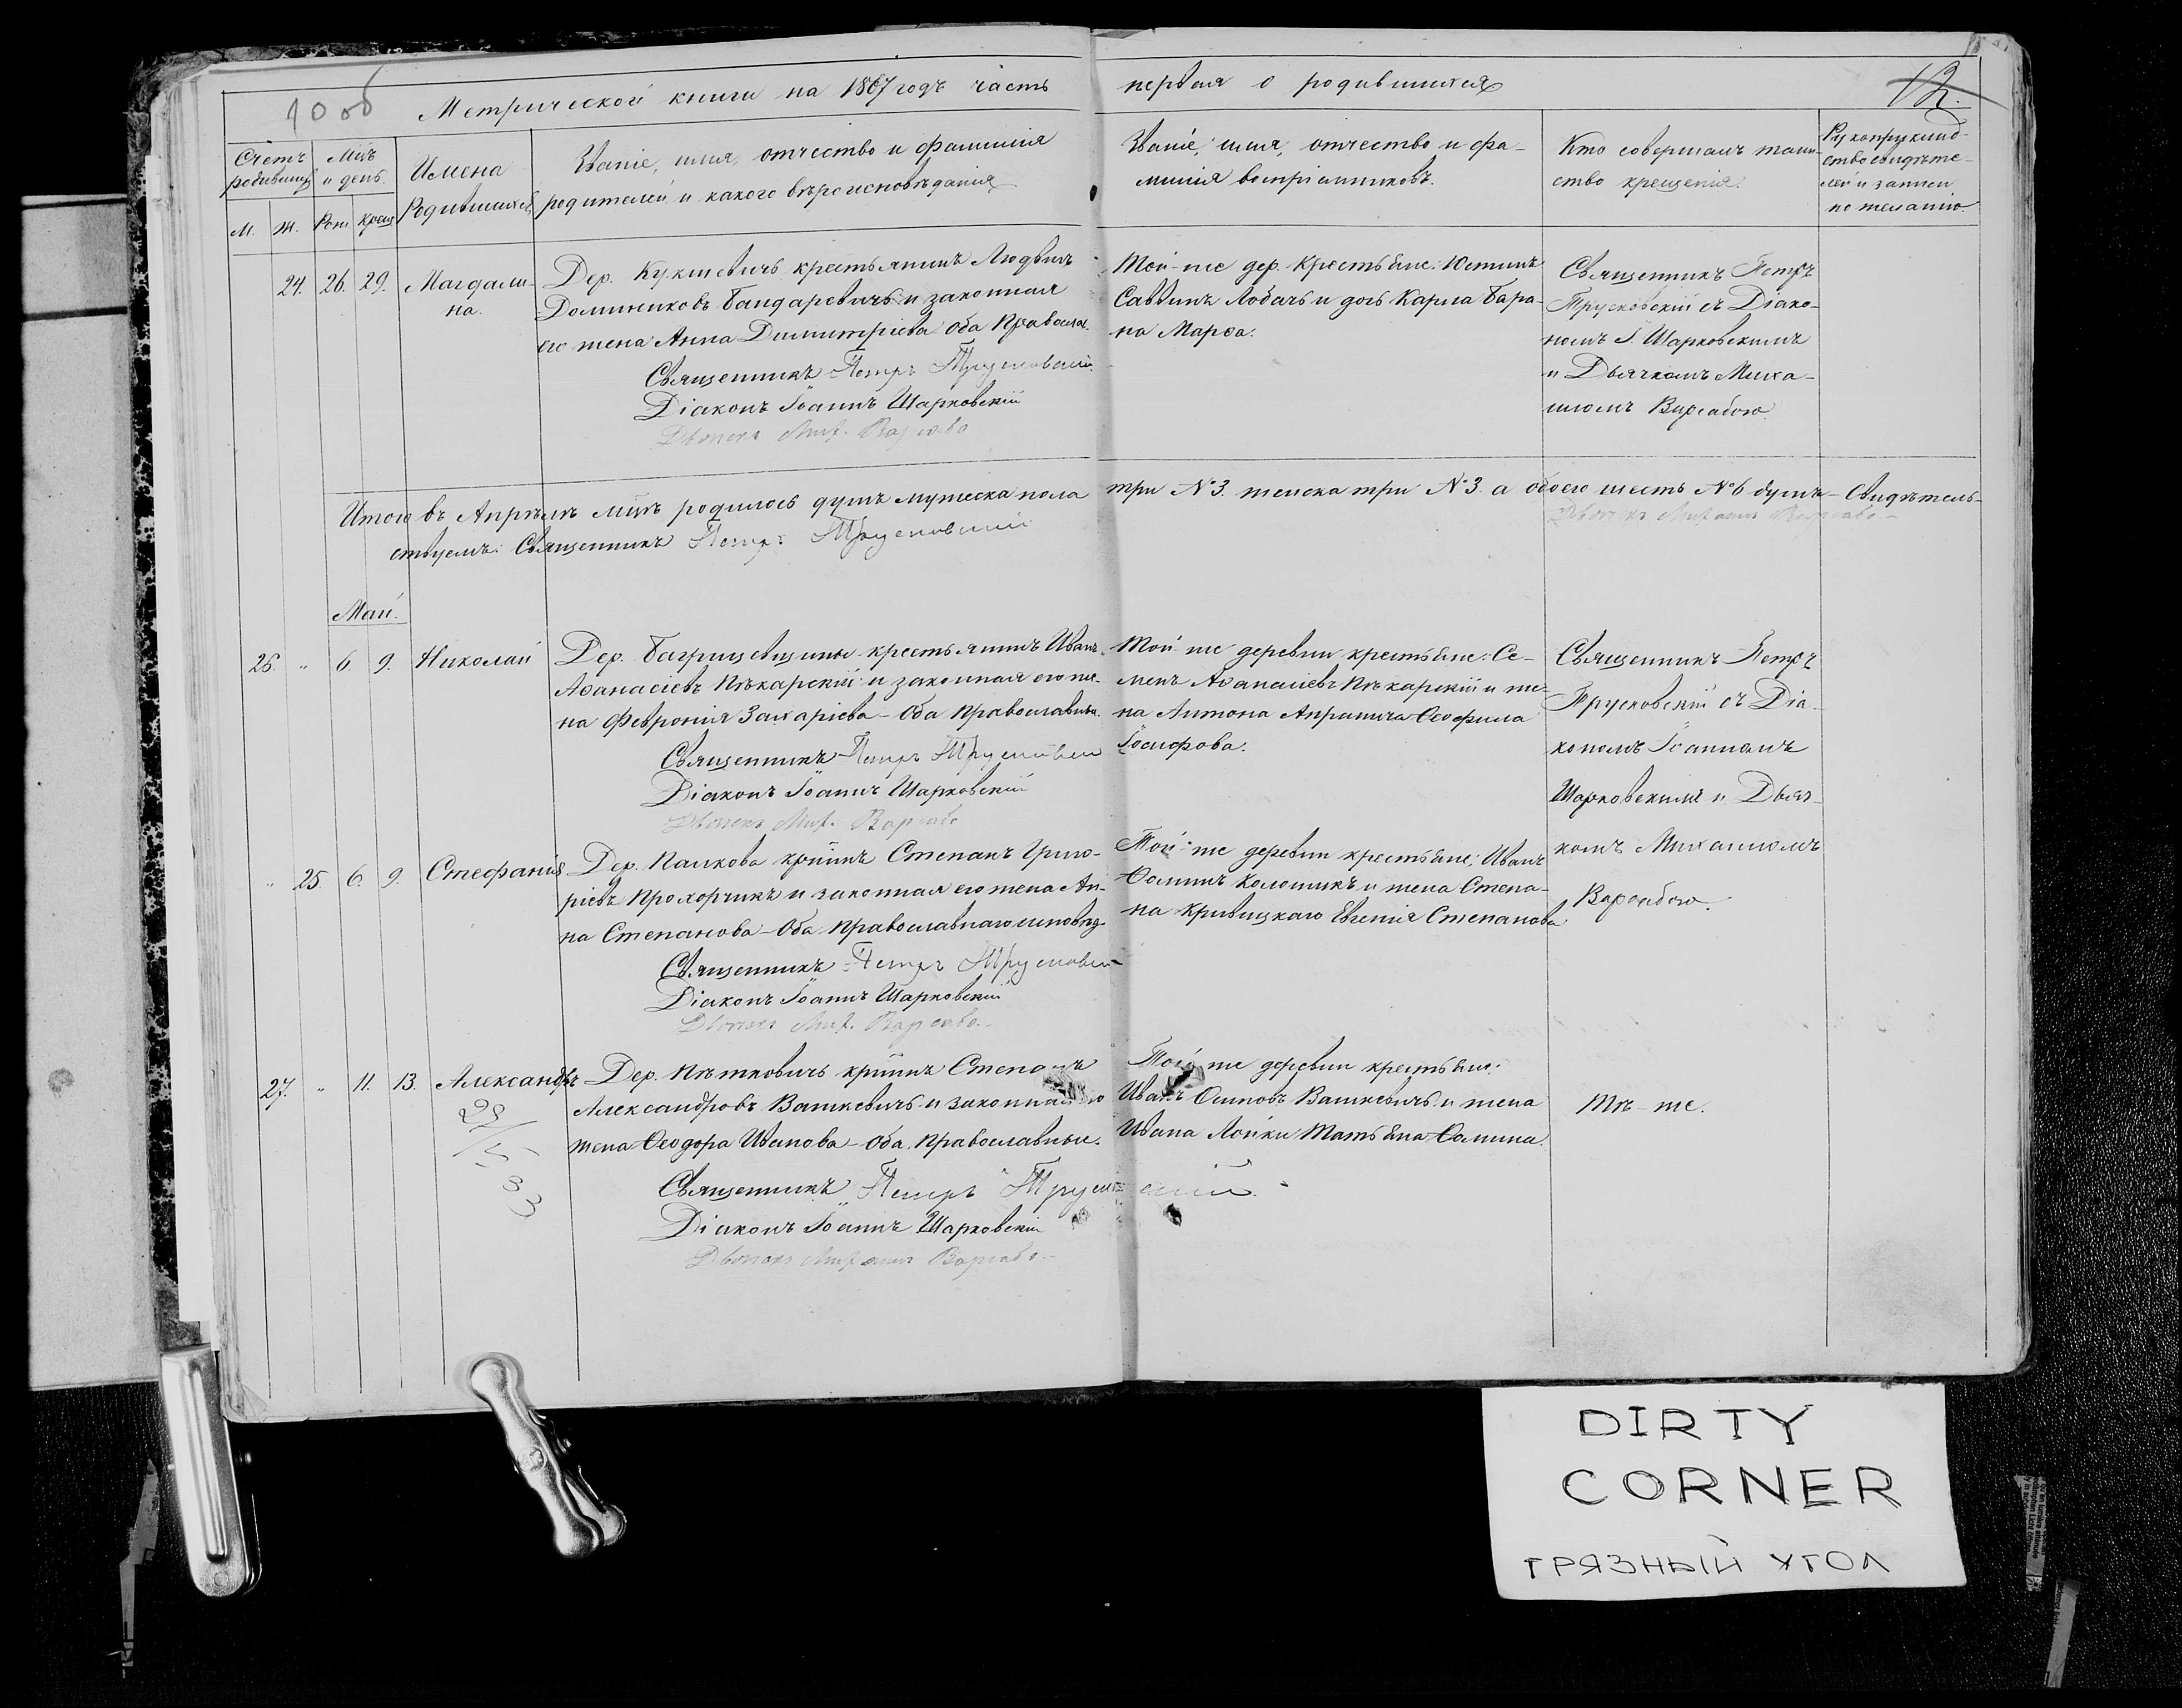 Метрической книги на 1867 годъ часть первая о родившихся
12.
Счетъ родившихся
Мцъ и день
Имена Родившихся
Званіе, имя, отчество и фамилія
родителей и какого вѣроисповѣданія
Званіе, имя, отчество и фа-
милія воспріемниковъ.
Кто совершалъ таин-
ство крещенія.
Рукоприклад-
ство свидѣте-
лей о записи
по желанію.
М. Ж. Рож Крещ
24. 26. 29. Магдали-
на.
Дер. Кукшевичь крестьянинъ Людвикъ
Доминиковъ Бандаревичъ и законная
его жена Анна Димитріева оба Православ.
Священникъ Петръ Трусковскій
Діаконъ Іоаннъ Шарковскій
Дьячекъ Мих. Варсаба
Той-же дер. Крестьяне: Юстинъ
Саввинъ Лобачъ и дочь Карпа Бара-
на Марѳа.
Священникъ Петръ
Трусковскій съ Діако-
номъ І. Шарковскимъ
и Дьячкомъ Миха-
иломъ Варсабою.
Итого въ Апрѣлѣ мцѣ родилось душъ мужеска пола три №3. женска три №3. а обоего шесть №6 душъ - Свидѣтель-
ствуемъ: Священникъ Петръ Трусковскій
Дьячекъ Михаилъ Варсаба
Май.
26. " 6 9. Николай
Дер. Багрицевщины крестьянинъ Иванъ
Аѳанасіевъ Пѣкарскій и законная его же-
на Февронія Захаріева - Оба Православны.
Священникъ Петръ Трусковскій
Діаконъ Іоаннъ Шарковскій
Дьячекъ Мих. Варсаба
Той-же деревни крестьяне: Се-
менъ Аѳанасіевъ Пѣкарскій и же-
на Антона Апранича Ѳеофила
Іосифова.
Священникъ Петръ
Трусковскій съ Діа-
кономъ Іоанномъ
Шарковскимъ и Дьяч-
комъ Михаиломъ
Варсабою.
" 25. 6. 9. Стефанія
Дер. Палкова крнинъ Степанъ Григо-
ріевъ Прохорчикъ и законная его жена Ан-
на Степанова - Оба Православнаго исповѣд.
Священникъ Петръ Трусковскій
Діаконъ Іоаннъ Шарковскій
Дьячекъ Мих. Варсаба.
Той-же деревни крестьяне; Иванъ
Ѳоминъ Колошикъ и жена Степа-
на Кривицкаго Евгенія Степанова
27. " 11. 13. Александръ
Дер. Пѣтковичъ крнинъ Степанъ
Александровъ Вашкевичъ и законная его
жена Ѳеодора Иванова - Оба Православные.
Священникъ Петръ Трусковскій
Діаконъ Іоаннъ Шарковскій
Дьячекъ Михаилъ Варсаба
Той же деревни крестьяне:
Иванъ Осиповъ Вашкевичъ и жена
Ивана Лойки Татьяна Ѳомина.
Тѣ-же.
DIRTY
CORNER
ГРЯЗНЫЙ УГОЛ